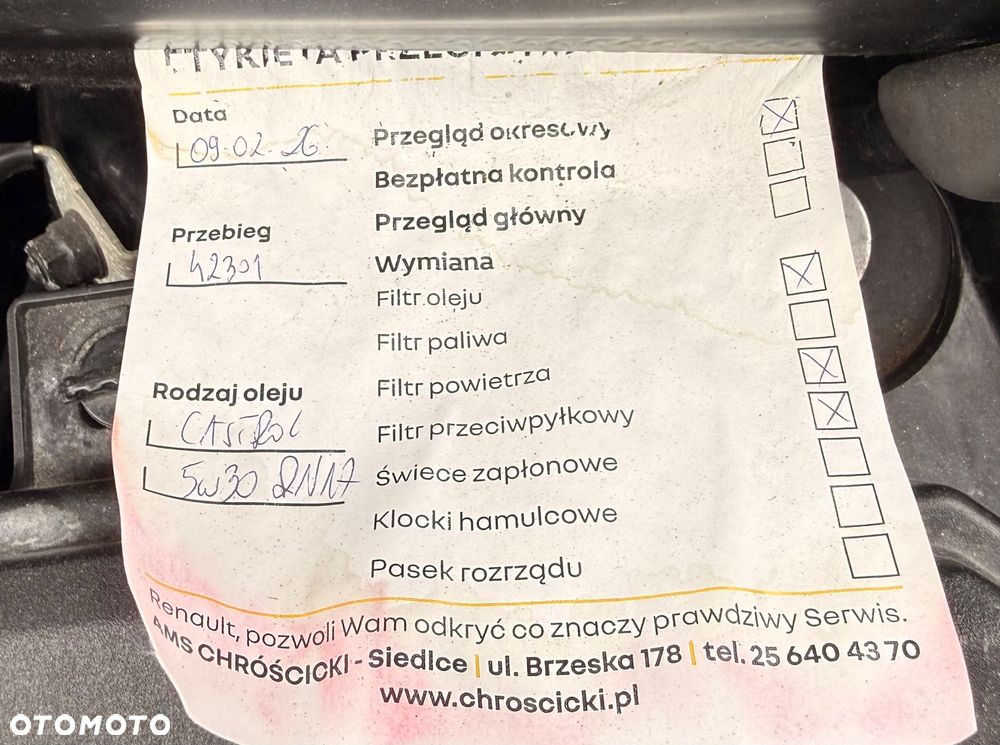 Data
09.02.26
Przegląd okresowy
Bezpłatna kontrola
Przegląd główny
Przebieg
42301
Wymiana
Filtr oleju
Filtr paliwa
Filtr powietrza
Rodzaj oleju
CASTROL
5W30 RN17
Filtr przeciwpyłkowy
Świece zapłonowe
Klocki hamulcowe
Pasek rozrządu
Renault, pozwoli Wam odkryć co znaczy prawdziwy Serwis.
AMS CHRÓŚCICKI - Siedlce | ul. Brzeska 178 | tel. 25 640 43 70
www.chroscicki.pl
OTOMOTO